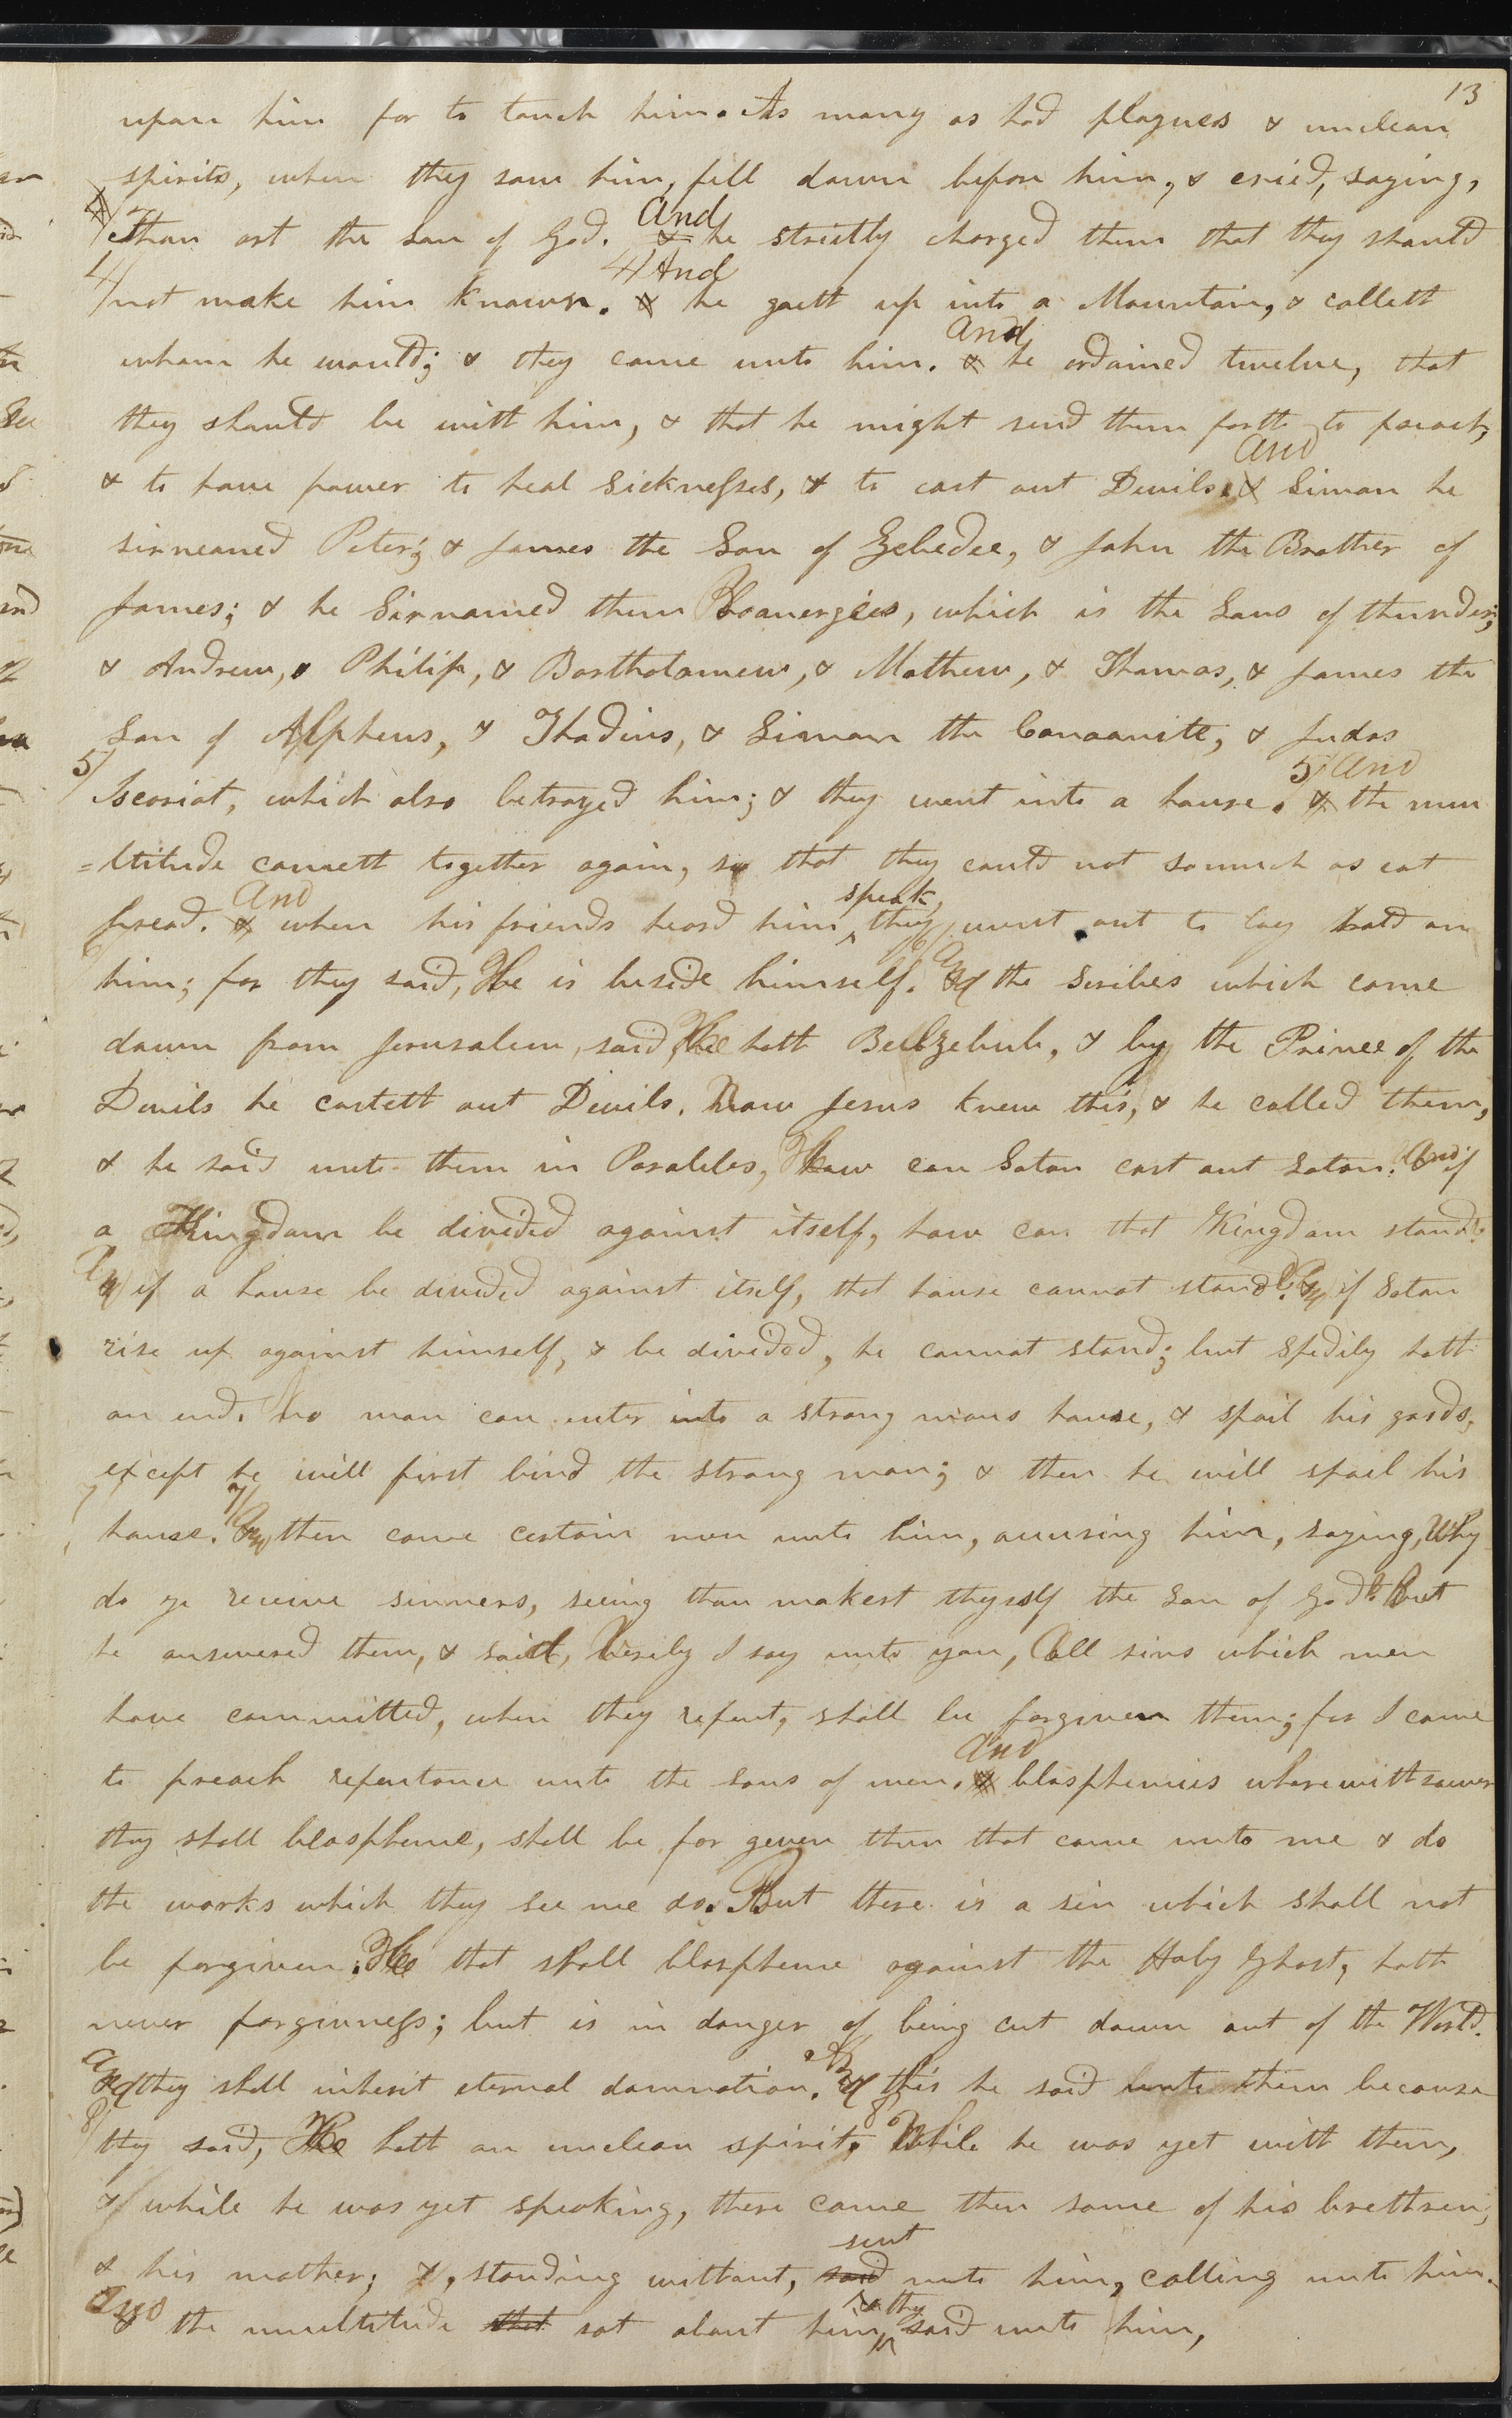 13
upon him for to touch him. As many as had plagues & unclean
spirits, when they saw him, fell down before him, & cried, saying,
Thou art the Son of God. And he strictly charged them that they should
4/ not make him known. 4/ And he goeth up into a Mountain, & calleth
whom he would; & they came unto him. And he ordained twelve, that
they should be with him, & that he might send them forth to preach,
& to have power to heal Sicknesses, & to cast out Devils. And Simon he
sirneamed Peter; & James the Son of Zebedee, & John the Brother of
James; & he Sirnamed them Boanerges, which is the Sons of thunder;
& Andrew, & Philip, & Bartholomew, & Mathew, & Thomas, & James the
Son of Alpheus, & Thadius, & Simon the Canaanite; & Judas
5/ Iscariot, which also betrayed him; & they went into a house. 5/ And the mu
=ltitude cometh together again, so that they could not somuch as eat
bread. And when his friends heard him speak, they went out to lay hold on
6/ him; for they said, He is beside himself. 6/ And the Scribes which came
down from Jerusalem, said, He hath Beelzebub, & by the Prince of the
Devils he casteth out Devils. Now Jesus knew this, & he called them,
& he said unto them in Parables, How can Satan cast out Satan? And if
a Kingdom be divided against itself, how can that Kingdom stand?
And if a house be divided against itself, that house cannot stand. And if Satan
rise up against himself, & be divided, he cannot stand; but spedily hath
an end. No man can enter into a strong mans house, & spoil his goods,
except he will first bind the strong man; & then he will spoil his
7/ house. 7/ And then came certain men unto him, accusing him, saying, Why
do ye receive sinners, seeing thou makest thyself the Son of God? But
he answered them, & said, Verily I say unto you, All sins which men
have committed, when they repent, shall be forgiven them; for I came
to preach repentance unto the sons of men. And blasphemies wherewithsoever
they shall blaspheme, shall be for given them that come unto me & do
the works which they see me do. But there is a sin which shall not
be forgiven. He that shall blaspheme against the Holy Ghost, hath
never forgivness; but is in danger of being cut down out of the World.
And they shall inherit eternal damnation. And this he said unto them because
8/ they said, He hath an unclean spirit. 8/ While he was yet with them,
& while he was yet speaking, there came then some of his brethren,
& his mother; &, standing without, said sent unto him, calling unto him.
And the multitude that sat about him, & they said unto him,